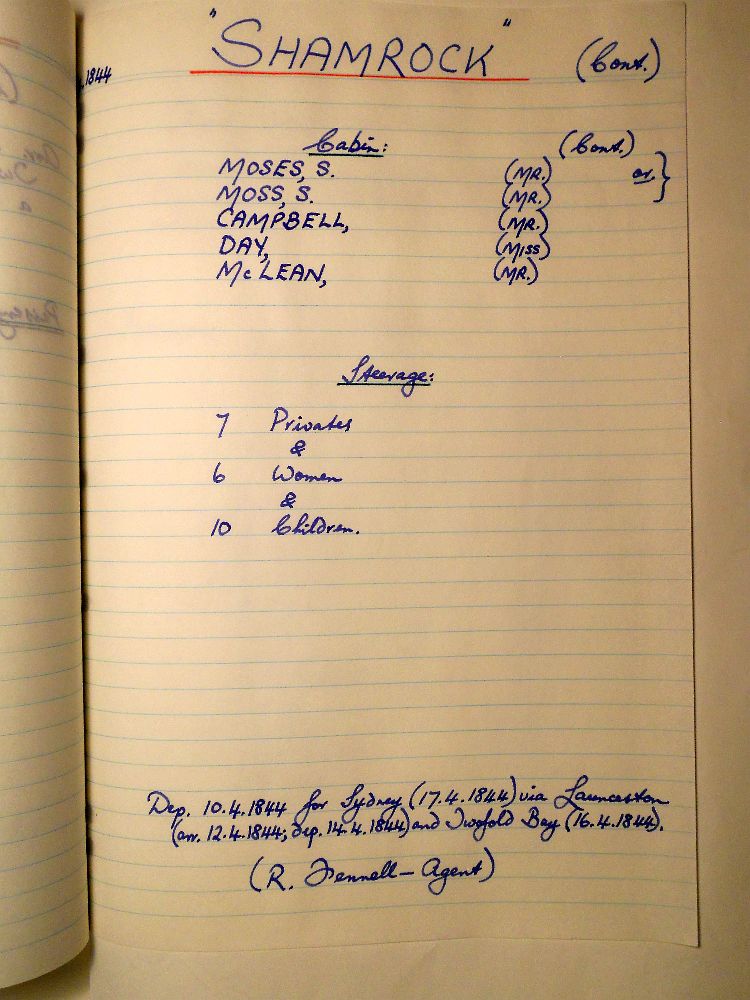 "SHAMROCK" (Cont.)
.1844
Cabin: (Cont.)
MOSES, S. (MR.) or. }
MOSS, S. (MR.)
CAMPBELL, (MR.)
DAY, (MISS)
McLEAN, (MR.)
Steerage:
7 Privates
&
6 Women
&
10 Children.
Dep. 10.4.1844 for Sydney (17.4.1844) via Launceston
(arr. 12.4.1844; dep. 14.4.1844) and Twofold Bay (16.4.1844).
(R. Fennell - Agent)